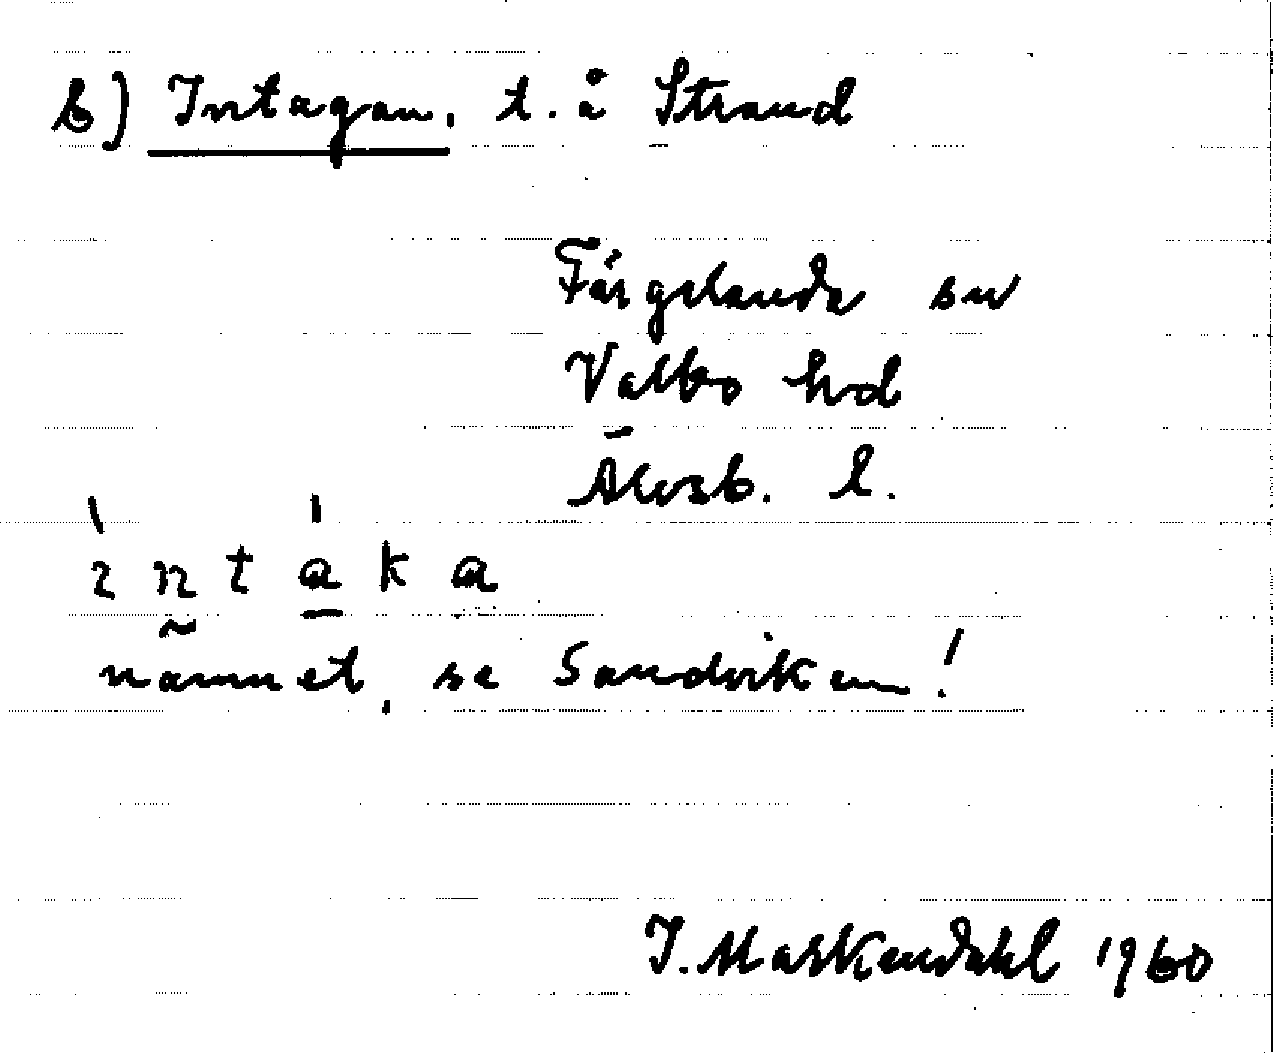 b) Intagan, t. å Strand
Färgelanda sn
Valbo hd
Älvsb. l.
ìntáka
nämnet, se Sandviken!
I. Maskendahl 1960